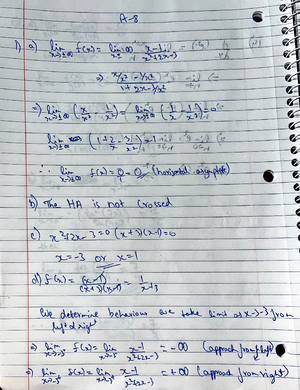 A-8
1) a) lim x→±∞ f(x) = lim x→±∞ x-1 / x²+2x-3
⇒ x/x² - 1/x² / 1 + 2x-3/x²
⇒ lim x→±∞ (x/x² - 1/x²) = lim x→±∞ (1/x - 1/x²) = 0
lim x→±∞ (1 + 2/x - 3/x²) = 1
∴ lim x→±∞ f(x) = 0 = 0 (horizontal asymptote)
b) The HA is not crossed
c) x²+2x-3=0 (x+3)(x-1)=0
x=-3 or x=1
d) f(x) = (x-1) / (x+3)(x-1) = 1 / x+3
We determine behaviour we take limit as x→-3 from
left & right
⇒ lim x→-3⁻ f(x) = lim x→-3⁻ x-1 / x²+2x-3 = -∞ (approach from left)
⇒ lim x→-3⁺ f(x) = lim x→-3⁺ x-1 / x²+2x-3 = +∞ (approach from right)